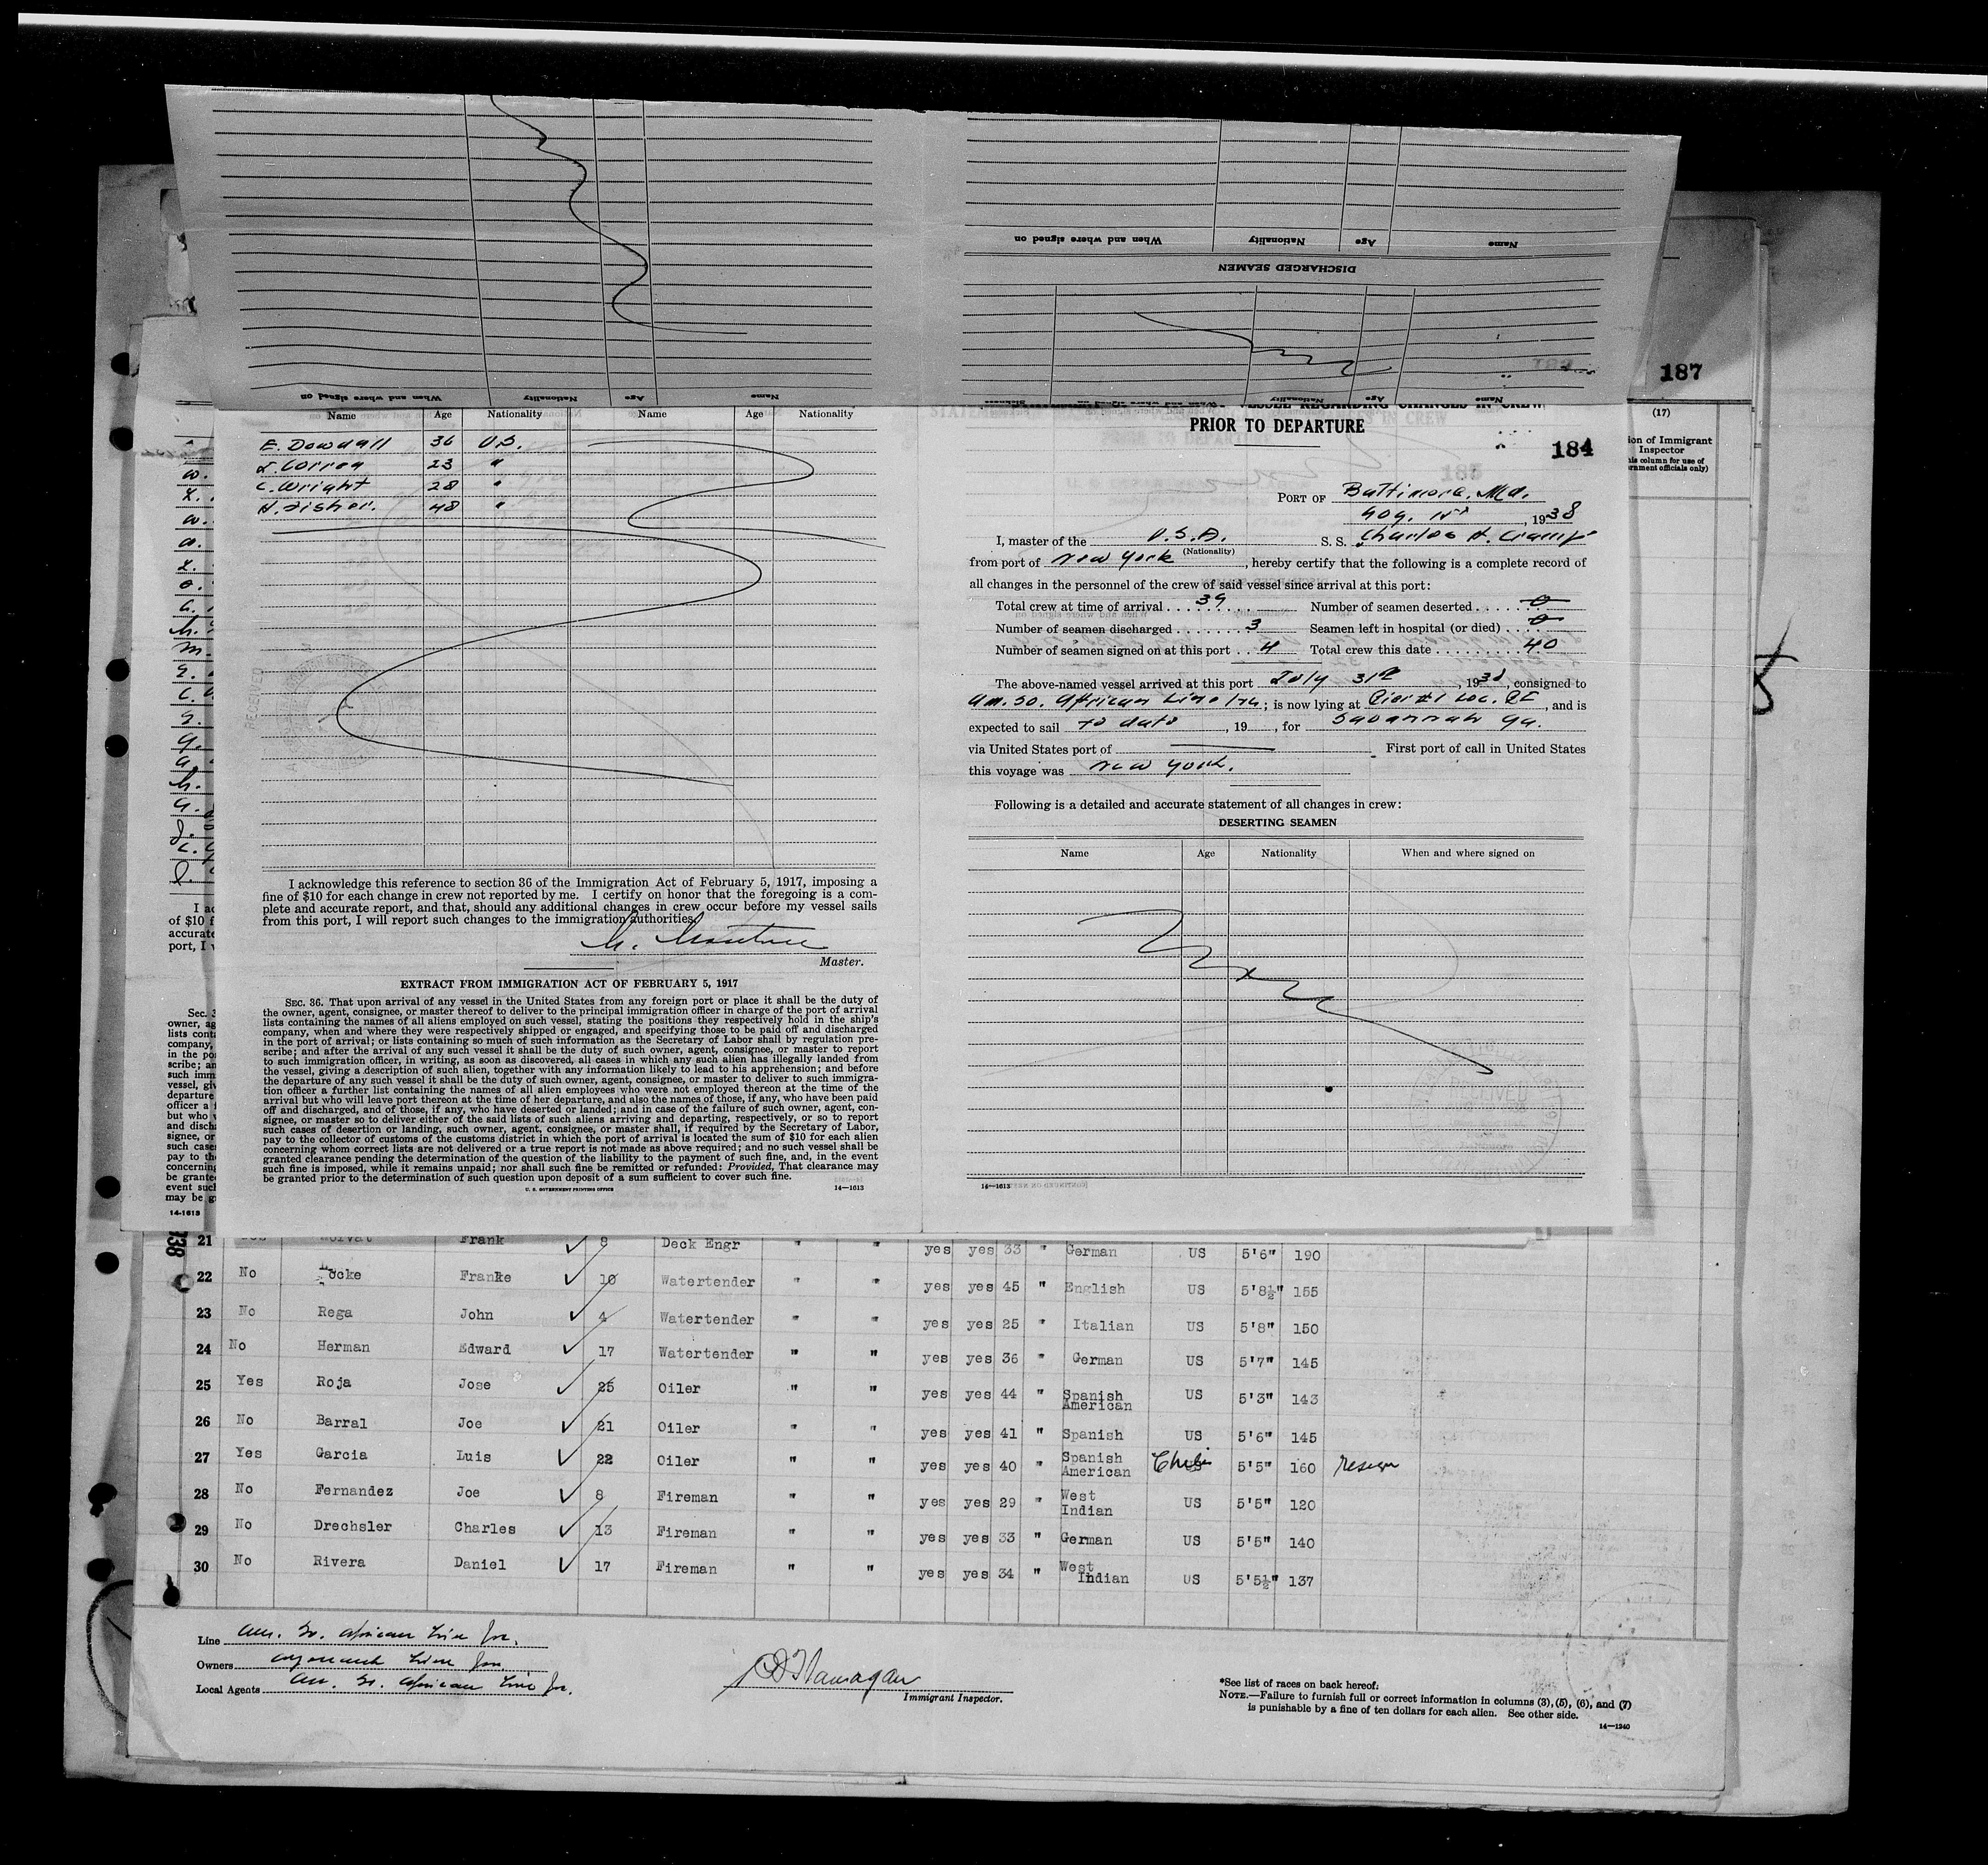 When and where signed on Nationality Age Name
DISCHARGED SEAMEN
When and where signed on Nationality Age Name
When and where signed on Nationality Age Name
187
(17)
ion of Immigrant
Inspector
Name Age Nationality Name Age Nationality
E. Dowdall 36 U.S.
23 "
C. Wright 28 "
H. Fisher. 48 "
I acknowledge this reference to section 36 of the Immigration Act of February 5, 1917, imposing a
fine of $10 for each change in crew not reported by me. I certify on honor that the foregoing is a com-
plete and accurate report, and that, should any additional changes in crew occur before my vessel sails
from this port, I will report such changes to the immigration authorities.
Master.
EXTRACT FROM IMMIGRATION ACT OF FEBRUARY 5, 1917
SEC. 36. That upon arrival of any vessel in the United States from any foreign port or place it shall be the duty of
the owner, agent, consignee, or master thereof to deliver to the principal immigration officer in charge of the port of arrival
lists containing the names of all aliens employed on such vessel, stating the positions they respectively hold in the ship's
company, when and where they were respectively shipped or engaged, and specifying those to be paid off and discharged
in the port of arrival; or lists containing so much of such information as the Secretary of Labor shall by regulation pre-
scribe; and after the arrival of any such vessel it shall be the duty of such owner, agent, consignee, or master to report
to such immigration officer, in writing, as soon as discovered, all cases in which any such alien has illegally landed from
the vessel, giving a description of such alien, together with any information likely to lead to his apprehension; and before
the departure of any such vessel it shall be the duty of such owner, agent, consignee, or master to deliver to such immigra-
tion officer a further list containing the names of all alien employees who were not employed thereon at the time of the
arrival but who will leave port thereon at the time of her departure, and also the names of those, if any, who have been paid
off and discharged, and of those, if any, who have deserted or landed; and in case of the failure of such owner, agent, con-
signee, or master so to deliver either of the said lists of such aliens arriving and departing, respectively, or so to report
such cases of desertion or landing, such owner, agent, consignee, or master shall, if required by the Secretary of Labor,
pay to the collector of customs of the customs district in which the port of arrival is located the sum of $10 for each alien
concerning whom correct lists are not delivered or a true report is not made as above required; and no such vessel shall be
granted clearance pending the determination of the question of the liability to the payment of such fine, and, in the event
such fine is imposed, while it remains unpaid; nor shall such fine be remitted or refunded: Provided, That clearance may
be granted prior to the determination of such question upon deposit of a sum sufficient to cover such fine.
U. S. GOVERNMENT PRINTING OFFICE 14—1613
PRIOR TO DEPARTURE
184
PORT OF Baltimore, Md.
, 1938
I, master of the U.S.A. S. S. Charles H. Cramp
(Nationality)
from port of New York, hereby certify that the following is a complete record of
all changes in the personnel of the crew of said vessel since arrival at this port:
Total crew at time of arrival 39 Number of seamen deserted 0
Number of seamen discharged 3 Seamen left in hospital (or died) 0
Number of seamen signed on at this port 4 Total crew this date 40
The above-named vessel arrived at this port July 31st, 1938, consigned to
Am. So. African Line Inc; is now lying at Pier #1 Loc. Pt, and is
expected to sail to date, 19 , for Savannah Ga.
via United States port of First port of call in United States
this voyage was New York.
Following is a detailed and accurate statement of all changes in crew:
DESERTING SEAMEN
Name Age Nationality When and where signed on
14—1613
21 Frank 8 Deck Engr " " yes yes 33 " German US 5'6" 190
22 No Locke Franke 10 Watertender " " yes yes 45 " English US 5'8½" 155
23 No Rega John 4 Watertender " " yes yes 25 " Italian US 5'8" 150
24 No Herman Edward 17 Watertender " " yes yes 36 " German US 5'7" 145
25 Yes Roja Jose 25 Oiler " " yes yes 44 " Spanish American US 5'3" 143
26 No Barral Joe 21 Oiler " " yes yes 41 " Spanish US 5'6" 145
27 Yes Garcia Luis 22 Oiler " " yes yes 40 " Spanish American Chile 5'5" 160
28 No Fernandez Joe 8 Fireman " " yes yes 29 " West Indian US 5'5" 120
29 No Drechsler Charles 13 Fireman " " yes yes 33 " German US 5'5" 140
30 No Rivera Daniel 17 Fireman " " yes yes 34 " West Indian US 5'5½" 137
Line Am. So. African Line Inc.
Owners Line Inc.
Local Agents Am. So. African Line Inc.
Immigrant Inspector.
*See list of races on back hereof.
NOTE.—Failure to furnish full or correct information in columns (3), (5), (6), and (7)
is punishable by a fine of ten dollars for each alien. See other side.
14—1240